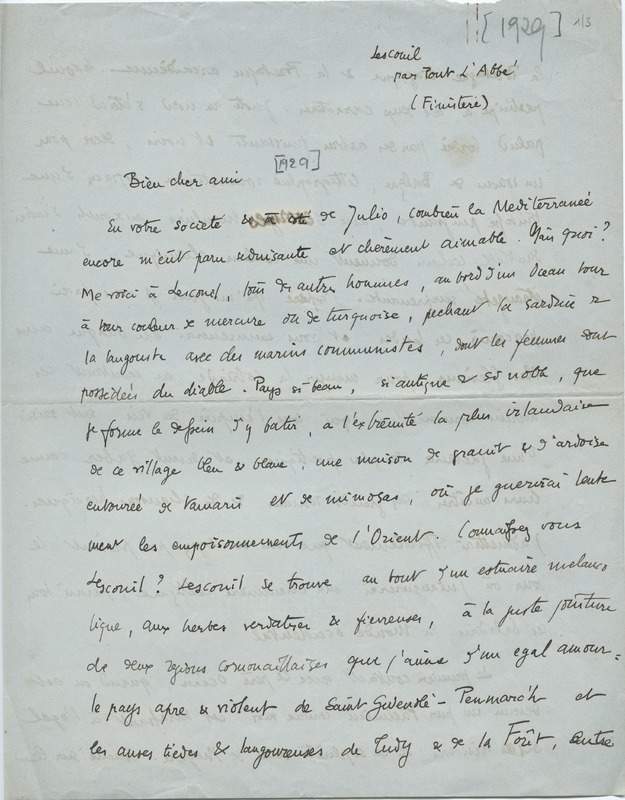 [1929] 1/3
Lesconil
par Pont L'Abbé
(Finistère)
[1929]
Bien cher ami
En votre société & de Julio, combien la Mediterraneé
encore m'eût paru séduisante et chèrement aimable. Mais quoi?
Me voici à Lesconil, loin des autres hommes, au bord d'un Océan tour
à tour couleur de mercure ou de turquoise, pechant la sardine &
la langouste avec des marins communistes, dont les femmes sont
possédées du diable. Pays si beau, si antique & si noble, que
je forme le dessein d'y batir, a l'extrémité la plus irlandaise
de ce village bleu & blanc, une maison de granit & d'ardoise
entourée de tamaris et de mimosas, où je guerirai lente
ment les empoisonnements de l'Orient. Connaissez vous
Lesconil? Lesconil se trouve au bout d'un estuaire melanco
lique, aux herbes verdatres & fievreuses, à la juste jointure
de deux régions cornouaillaises que j'aime d'un egal amour :
le pays apre & violent de Saint Guénolé - Penmarc'h et
les anses tiedes & langoureuses de Tudy & de la Forêt, entre